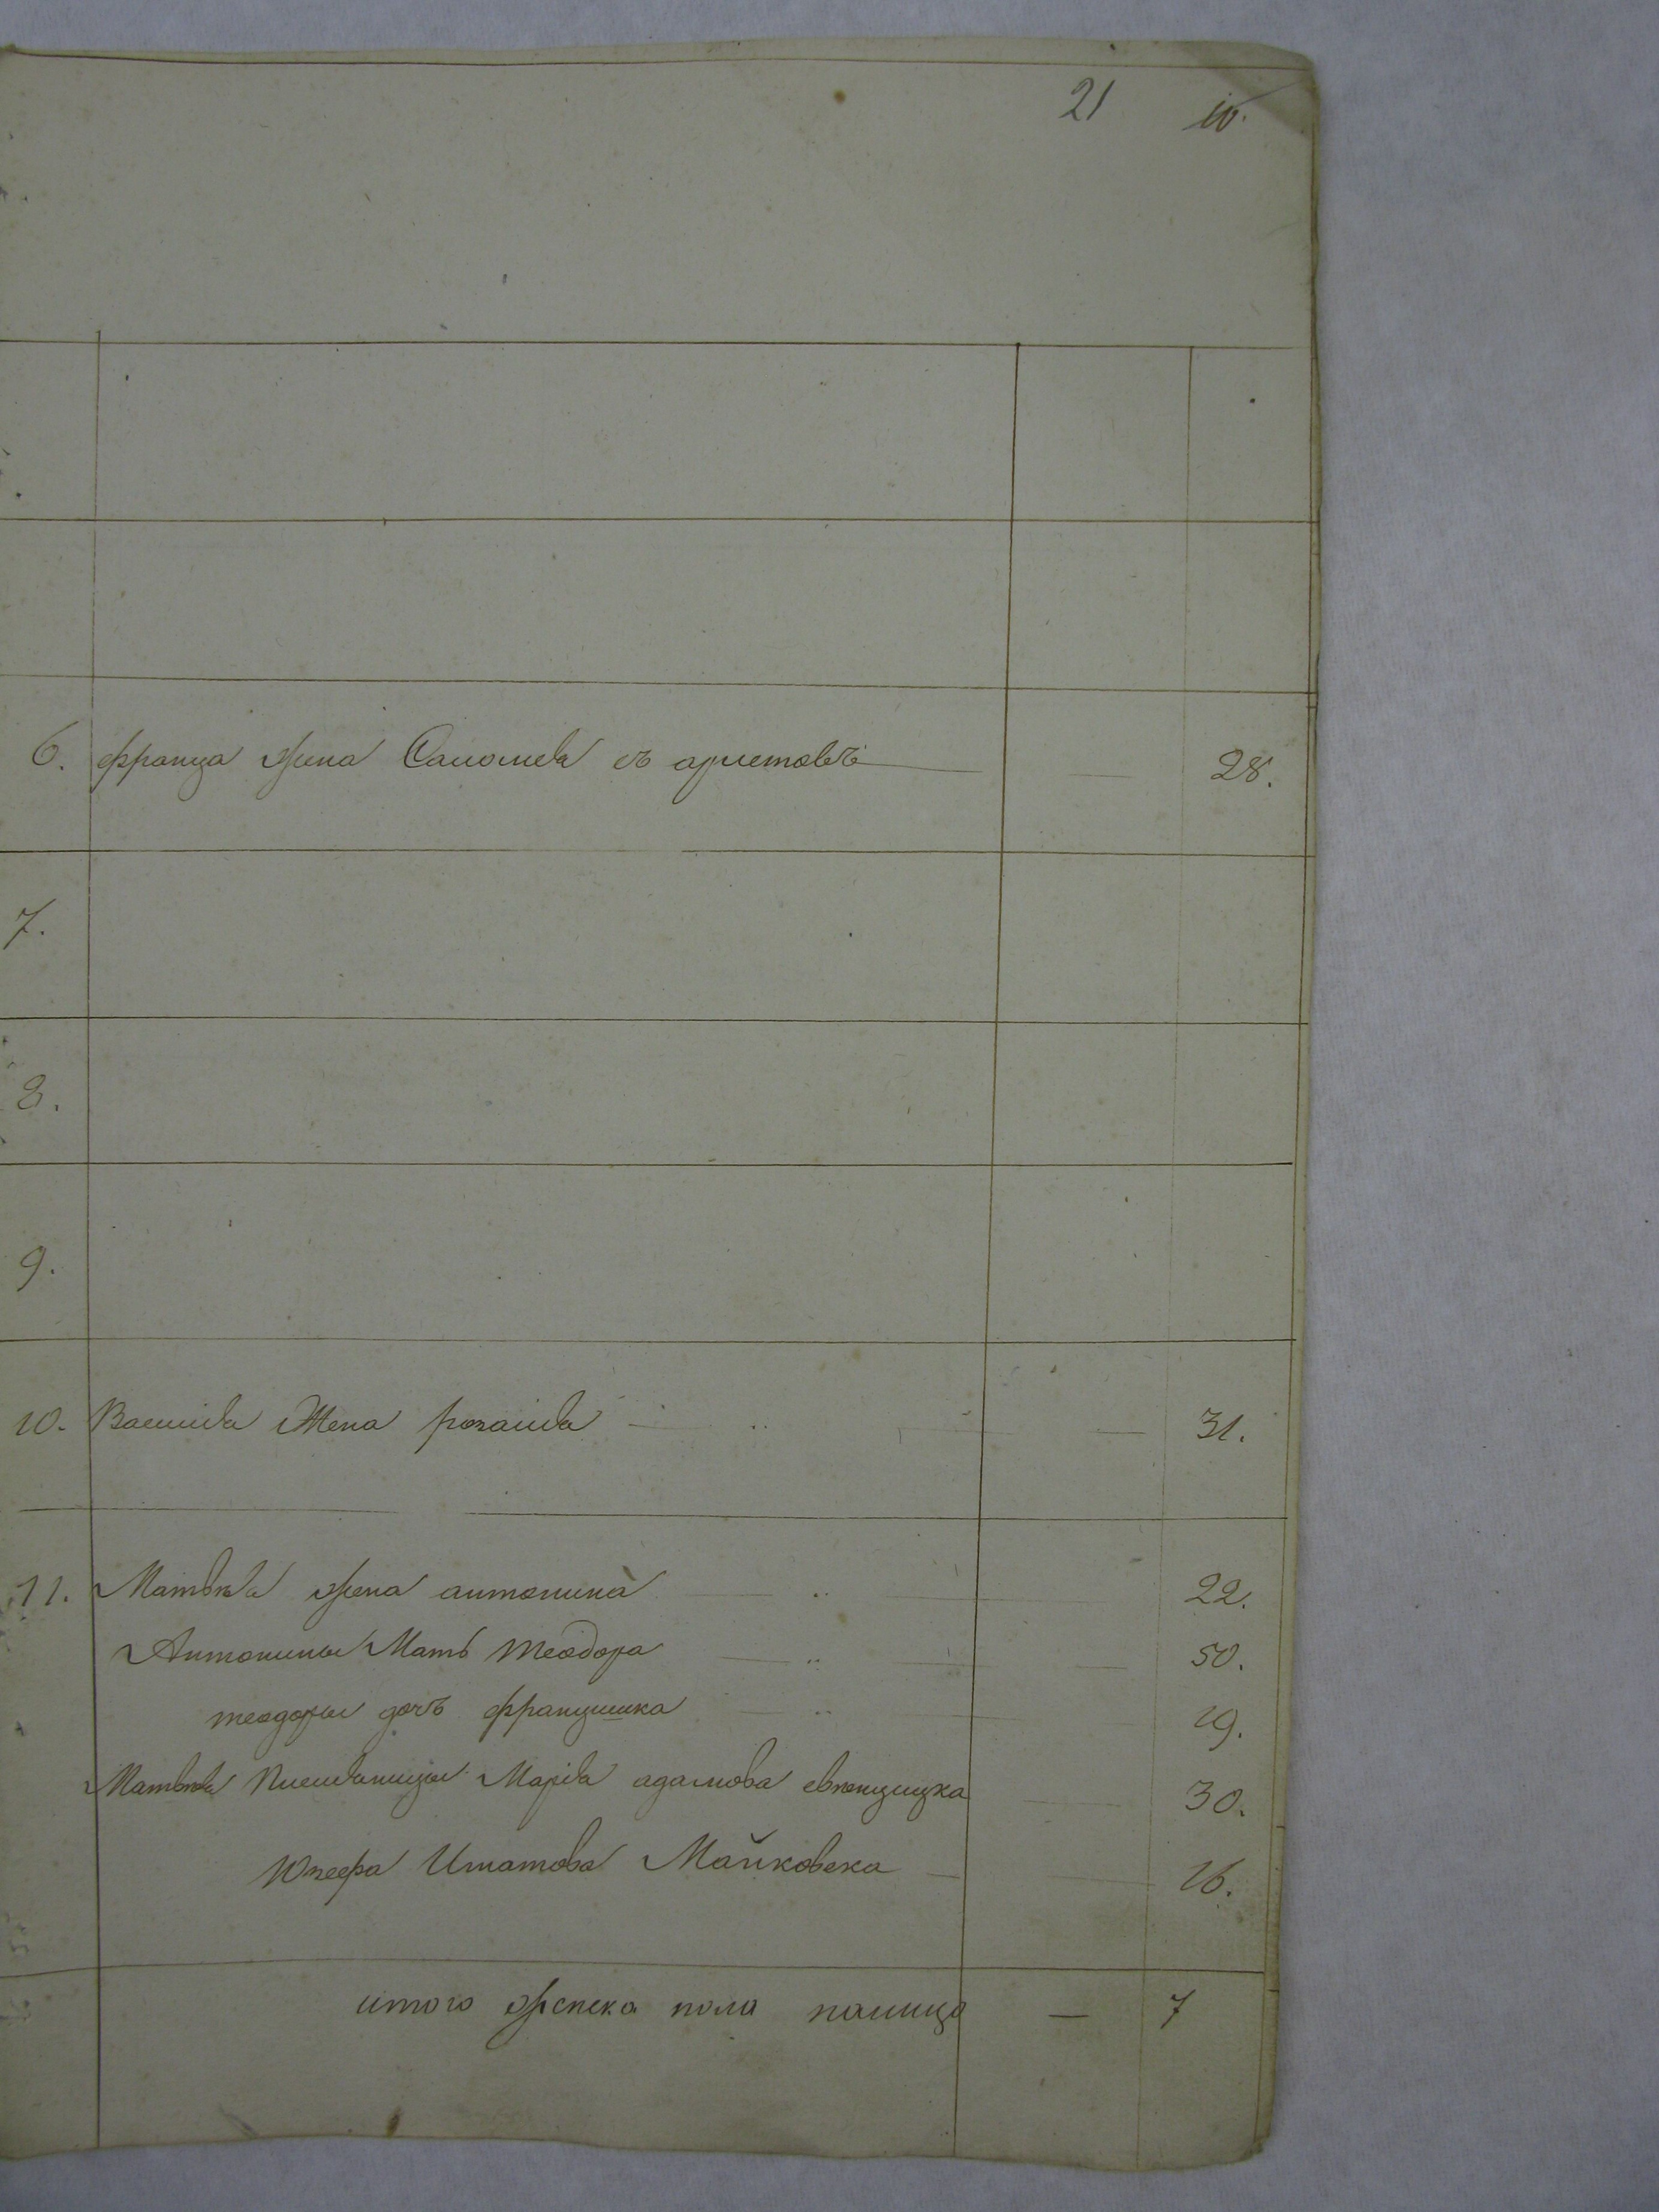 21 10.
6. франца жена Саломея — 28.
7.
8.
9.
10. Василія Жена розалія — — 31.
11. Матвѣя жена антонина — 22.
Антонины Мать Теодора — — 50.
теодоры дочь францишка — 19.
Матвѣя Племяницы Марія адамова — 30.
Юзефа Игнатова Майковска — 16.
итого женска пола налицо — 7